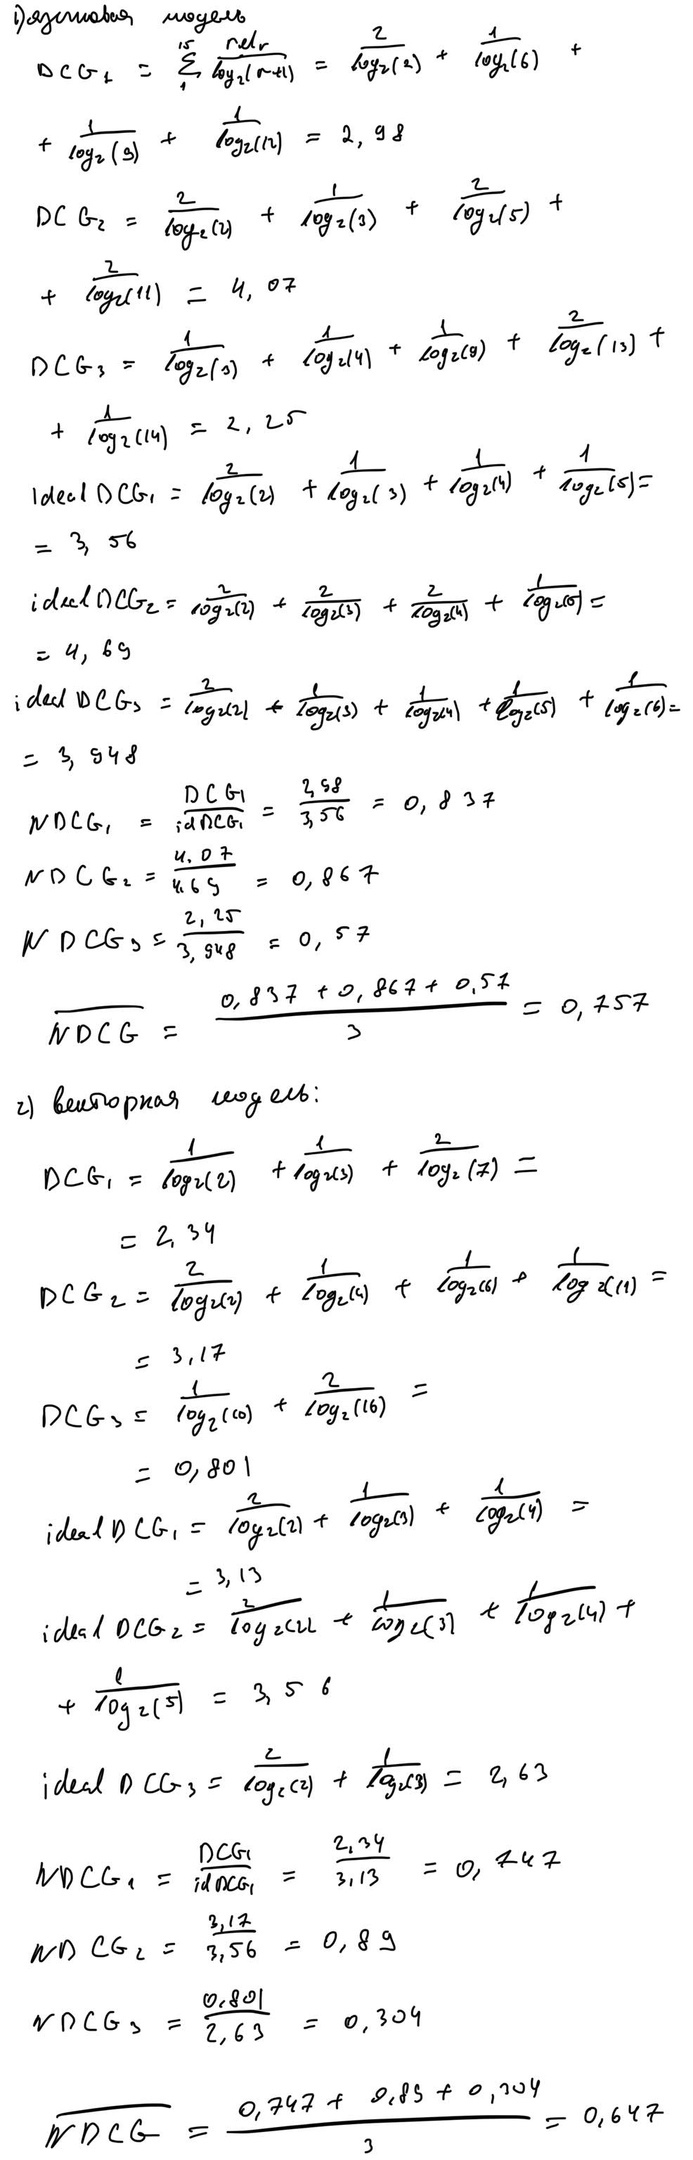 1) языковая модель
DCG₁ = Σ₁¹⁵ relr/log₂(r+1) = 2/log₂(2) + 1/log₂(6) +
+ 1/log₂(9) + 1/log₂(12) = 2,98
DCG₂ = 2/log₂(2) + 1/log₂(3) + 2/log₂(5) +
+ 2/log₂(11) = 4,07
DCG₃ = 1/log₂(3) + 1/log₂(4) + 1/log₂(9) + 2/log₂(13) +
+ 1/log₂(14) = 2,25
ideal DCG₁ = 2/log₂(2) + 1/log₂(3) + 1/log₂(4) + 1/log₂(5) =
= 3,56
ideal DCG₂ = 2/log₂(2) + 2/log₂(3) + 2/log₂(4) + 1/log₂(5) =
= 4,69
ideal DCG₃ = 2/log₂(2) + 1/log₂(3) + 1/log₂(4) + 1/log₂(5) + 1/log₂(6) =
= 3,948
NDCG₁ = DCG₁/idDCG₁ = 2,98/3,56 = 0,837
NDCG₂ = 4,07/4,69 = 0,867
NDCG₃ = 2,25/3,948 = 0,57
NDCG = (0,837 + 0,867 + 0,57)/3 = 0,757
2) векторная модель:
DCG₁ = 1/log₂(2) + 1/log₂(3) + 2/log₂(7) =
= 2,34
DCG₂ = 2/log₂(2) + 1/log₂(4) + 1/log₂(6) + 1/log₂(11) =
= 3,17
DCG₃ = 1/log₂(10) + 2/log₂(16) =
= 0,801
ideal DCG₁ = 2/log₂(2) + 1/log₂(3) + 1/log₂(4) =
= 3,13
ideal DCG₂ = 2/log₂(2) + 1/log₂(3) + 1/log₂(4) +
+ 1/log₂(5) = 3,56
ideal DCG₃ = 2/log₂(2) + 1/log₂(3) = 2,63
NDCG₁ = DCG₁/idDCG₁ = 2,34/3,13 = 0,747
NDCG₂ = 3,17/3,56 = 0,89
NDCG₃ = 0,801/2,63 = 0,304
NDCG = (0,747 + 0,89 + 0,304)/3 = 0,647